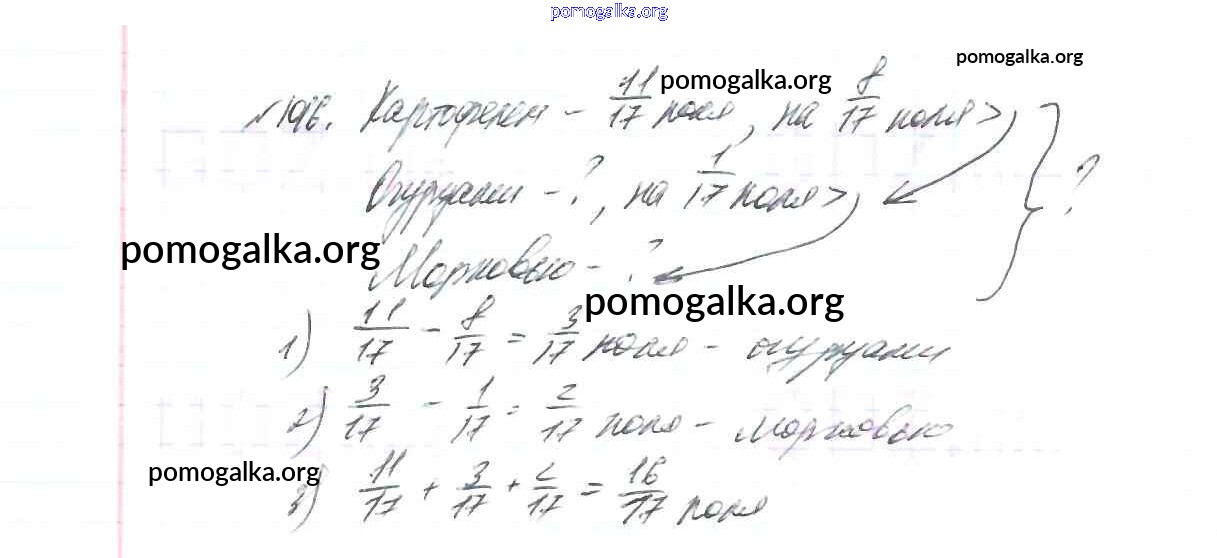 pomogalka.org
pomogalka.org
№196. Картофелем - 11/17 поля, на 8/17 поля >,
pomogalka.org
Огурцами - ?, на 1/17 поля >, } ?
pomogalka.org
Морковью - ?
pomogalka.org
1) 11/17 - 8/17 = 3/17 поля - огурцами
2) 3/17 - 1/17 = 2/17 поля - морковью
pomogalka.org
3) 11/17 + 3/17 + 2/17 = 16/17 поля